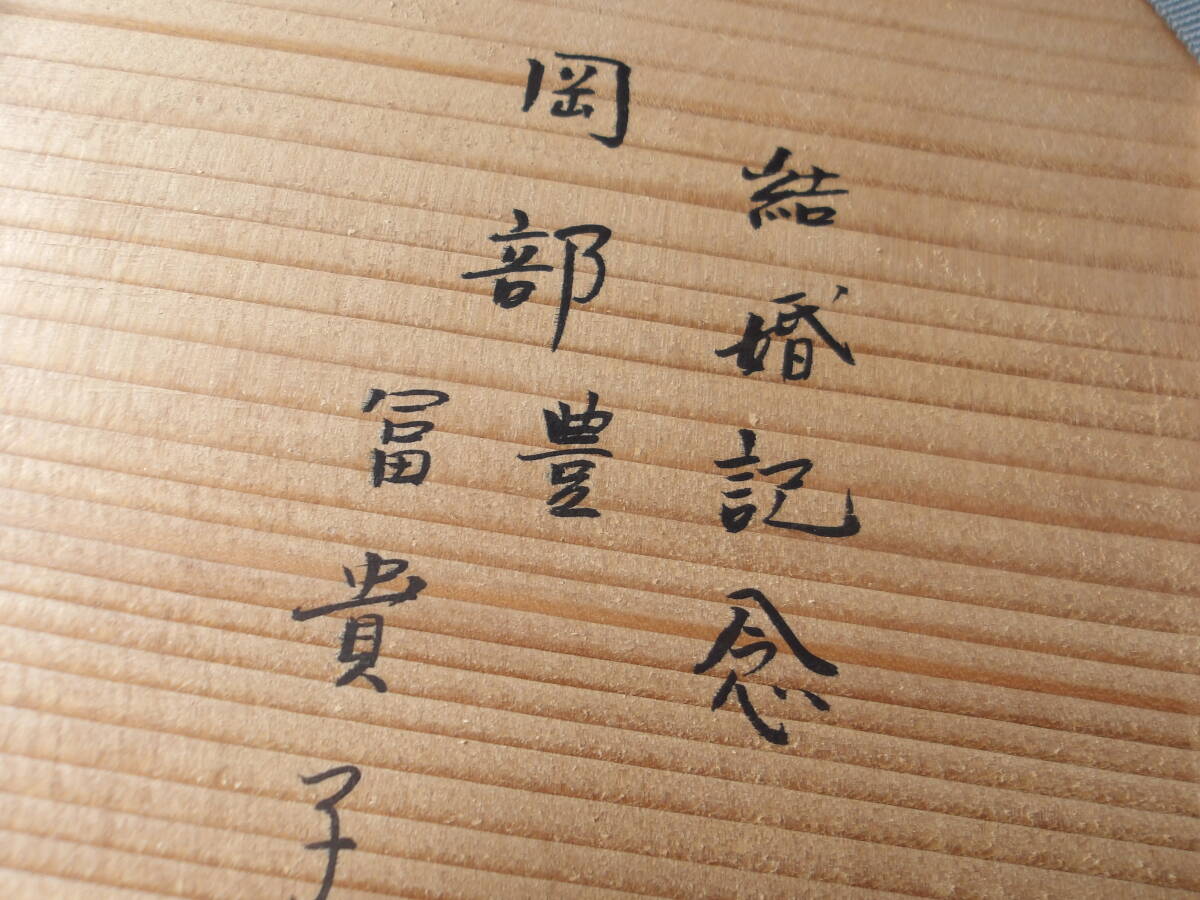 結婚記念
岡部豊
冨貴子